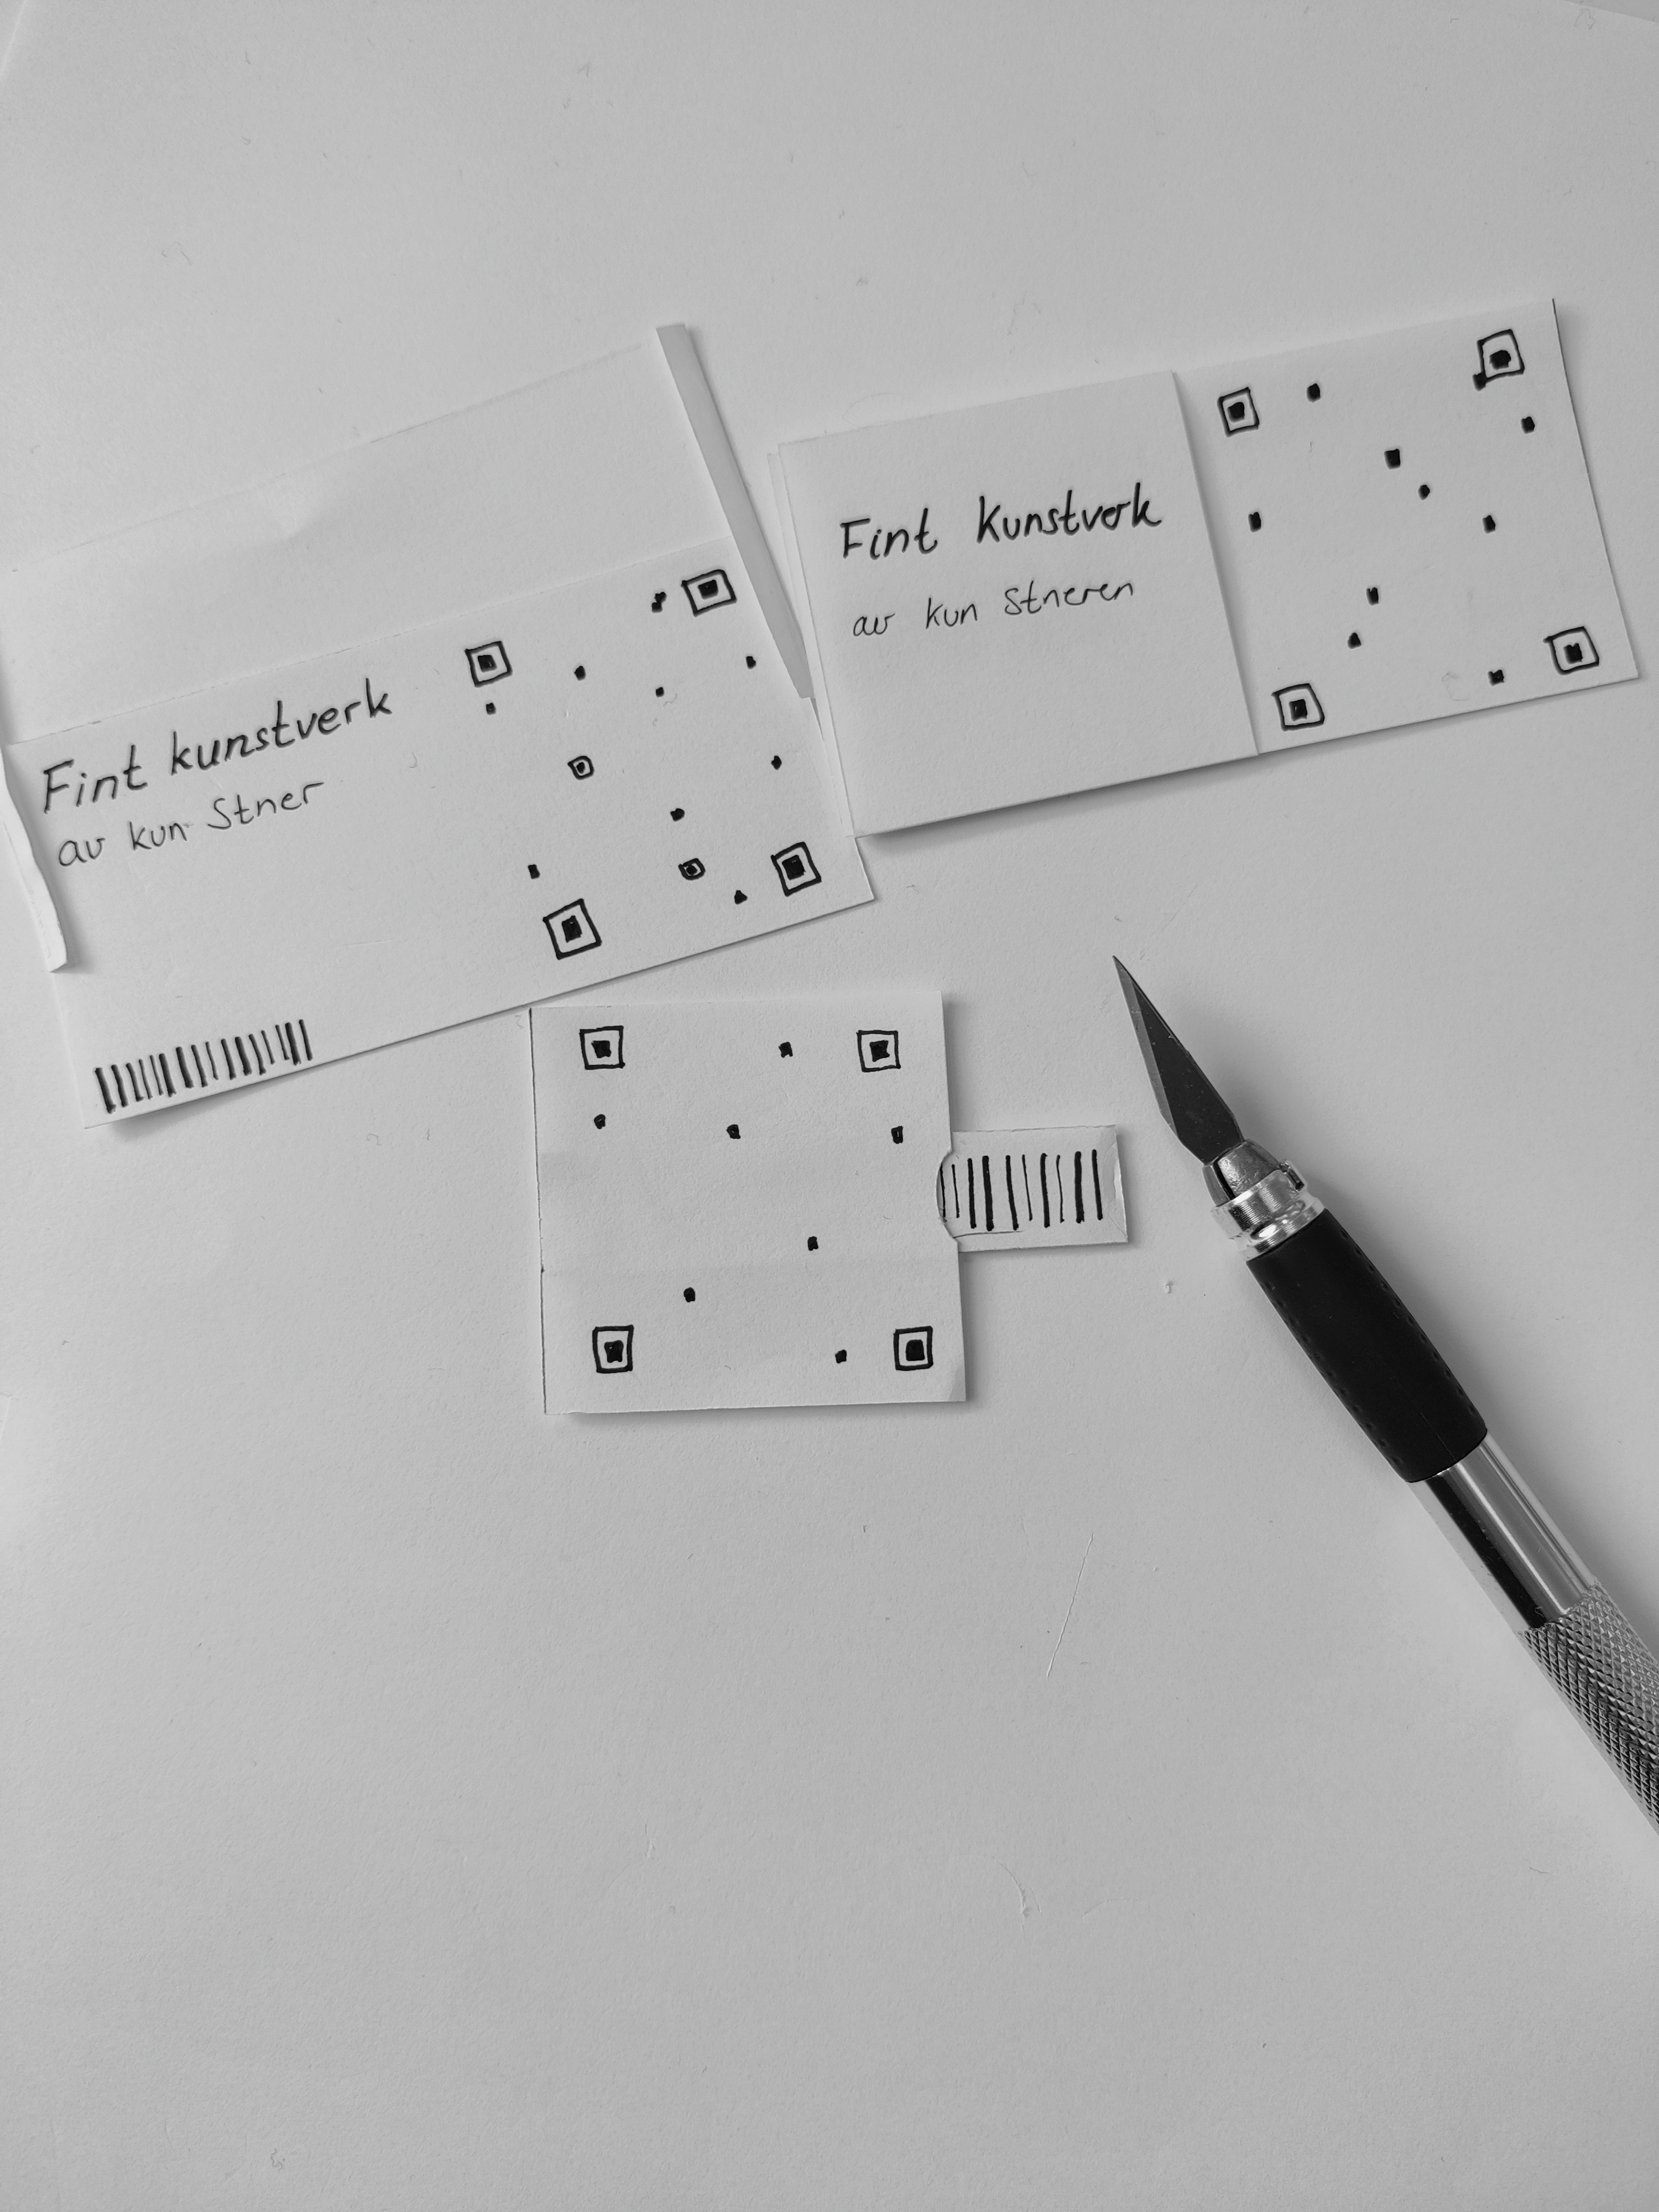 Fint kunstverk
av kun Stner
Fint Kunstverk
av kun Stneren